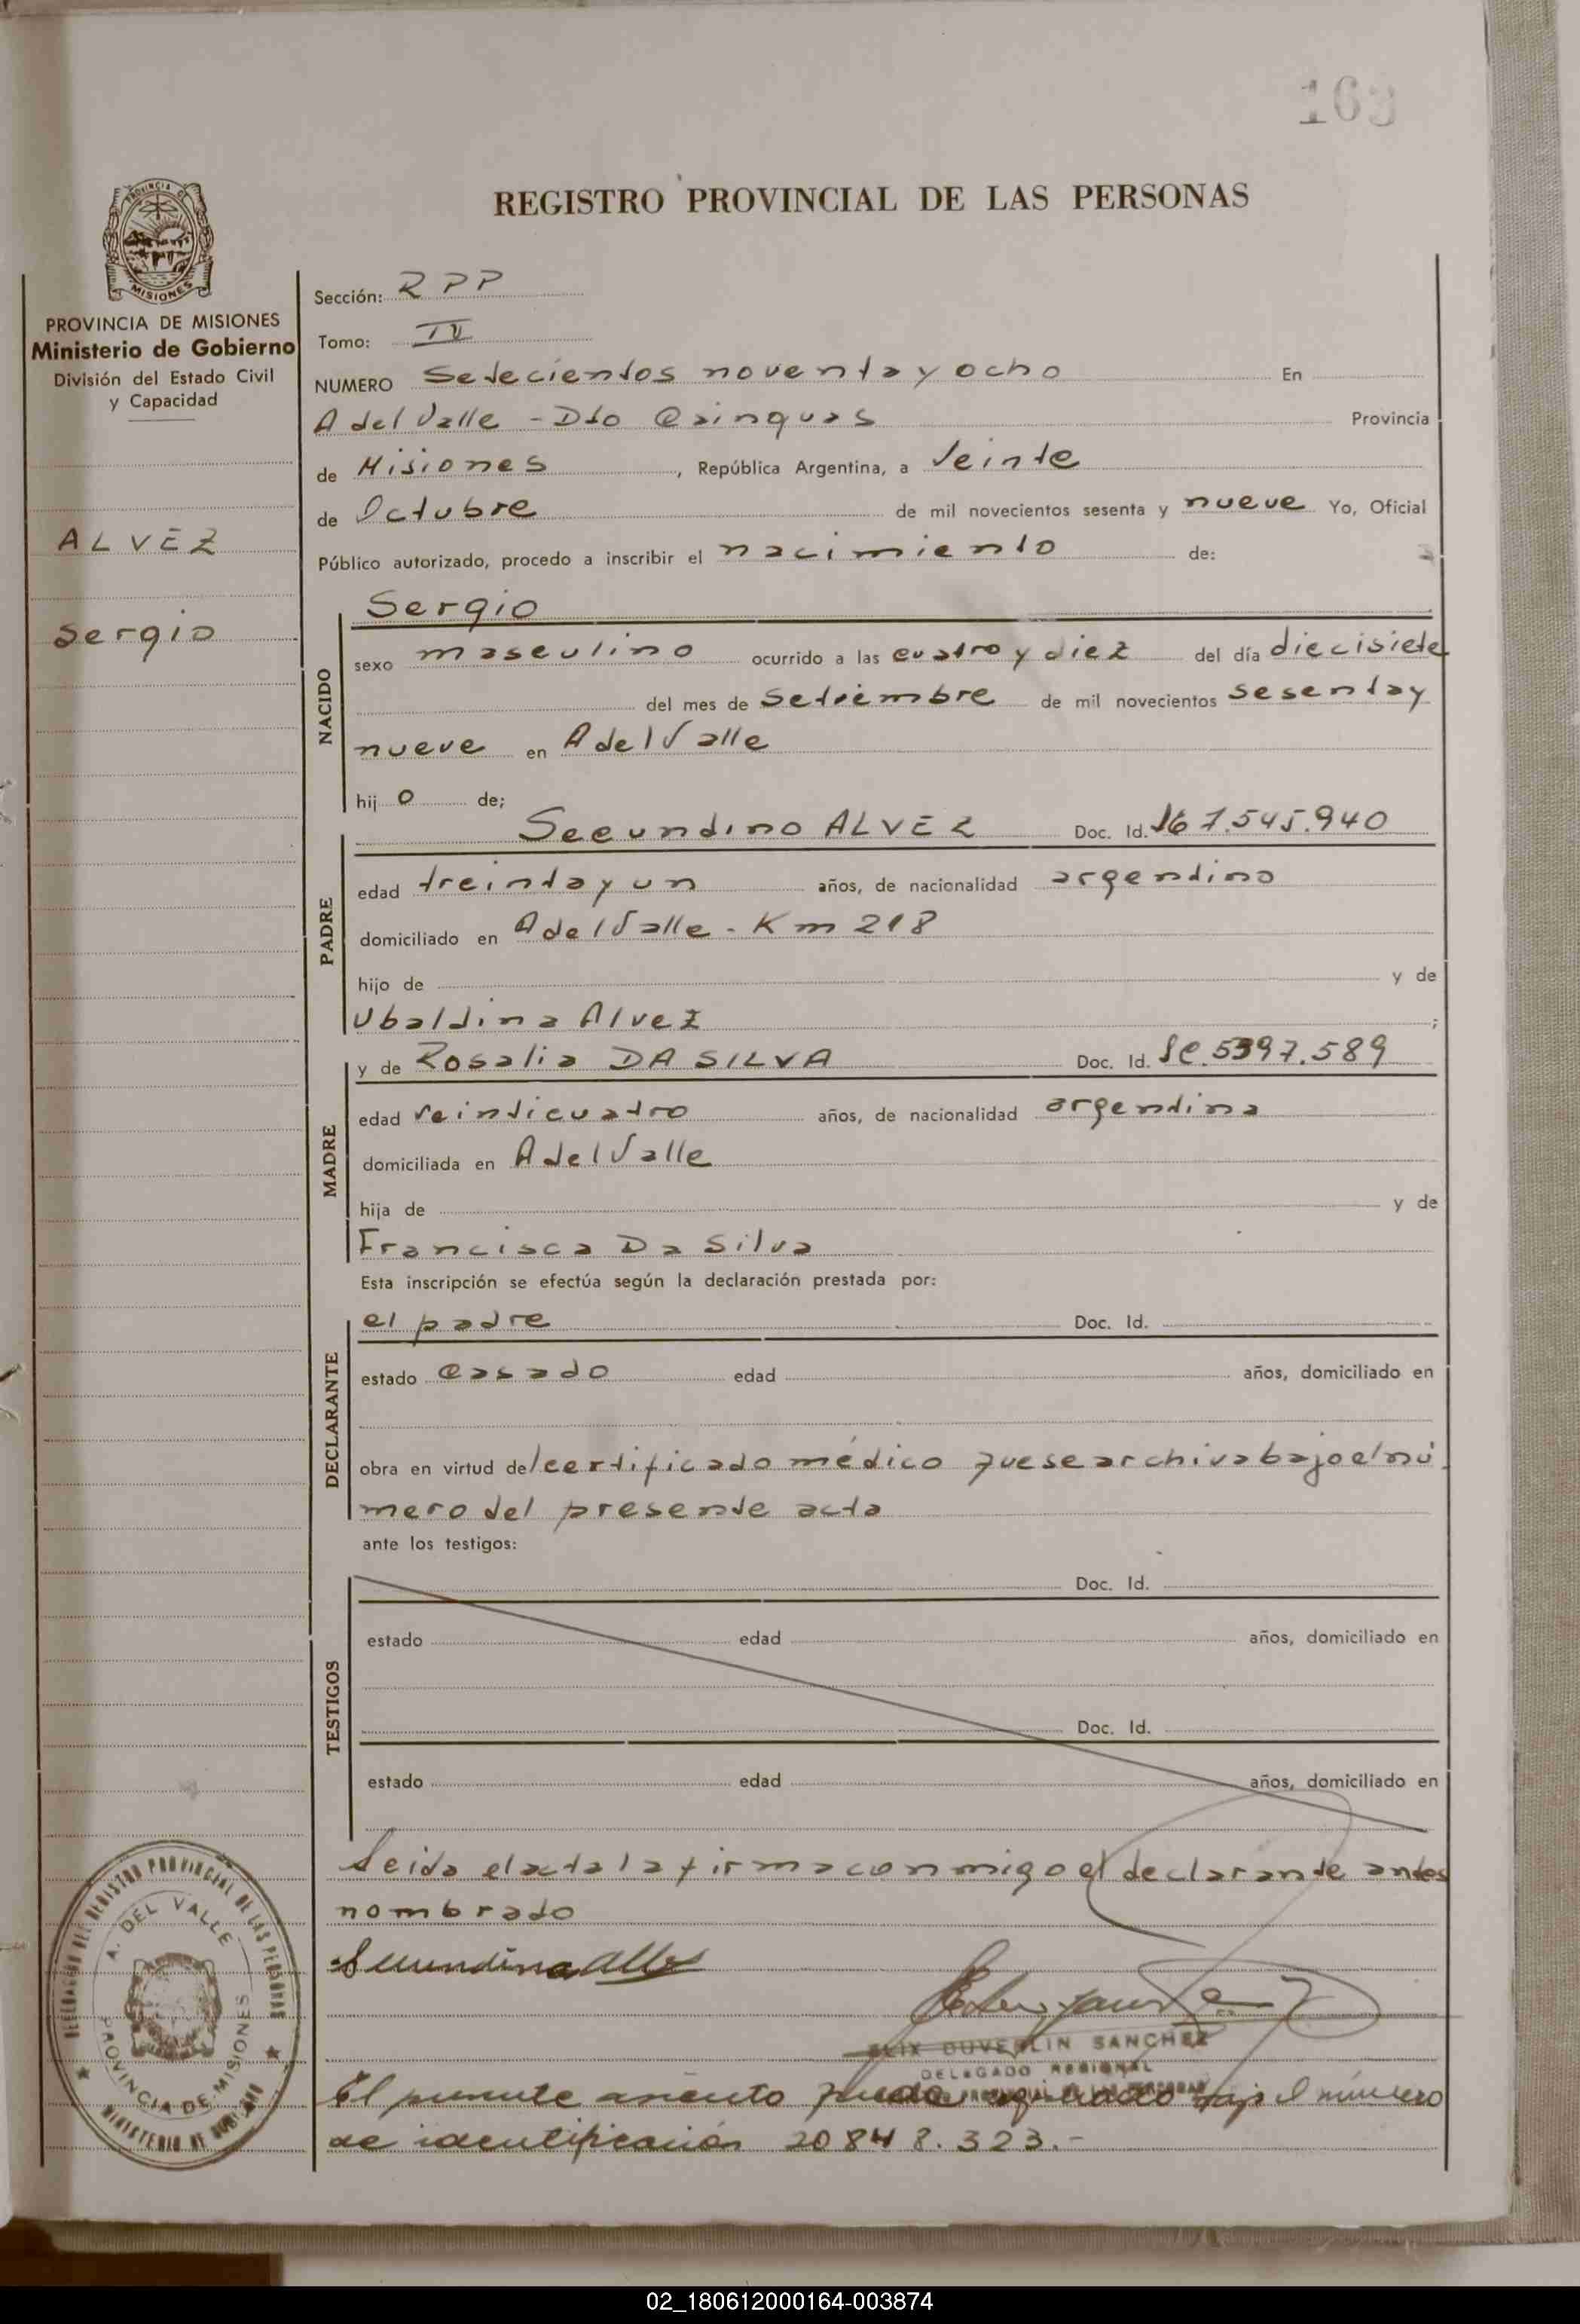 163
PROVINCIA DE
MISIONES
REGISTRO PROVINCIAL DE LAS PERSONAS
PROVINCIA DE MISIONES
Ministerio de Gobierno
División del Estado Civil
y Capacidad
ALVEZ
Sergio
Sección: RPP
Tomo: IV
NUMERO Setecientos noventa y ocho En
A del Valle - Dto Cainguas Provincia
de Misiones, República Argentina, a Veinte
de Octubre de mil novecientos sesenta y nueve Yo, Oficial
Público autorizado, procedo a inscribir el nacimiento de:
NACIDO
Sergio
sexo masculino ocurrido a las cuatro y diez del día diecisiete
del mes de Setiembre de mil novecientos sesenta y
nueve en A del Valle
hijo de;
PADRE
Secundino ALVEZ Doc. Id. 7.545.940
edad treinta y un años, de nacionalidad argentino
domiciliado en A del Valle - Km 218
hijo de y de
Ubaldina Alvez;
MADRE
y de Rosalia DA SILVA Doc. Id. 5397.589
edad veinticuatro años, de nacionalidad argentina
domiciliada en A del Valle
hija de y de
Francisca Da Silva
Esta inscripción se efectúa según la declaración prestada por:
DECLARANTE
el padre Doc. Id.
estado casado edad años, domiciliado en
obra en virtud del certificado médico que se archiva bajo el nú-
mero del presente acta
ante los testigos:
TESTIGOS
Doc. Id.
estado edad años, domiciliado en
Doc. Id.
estado edad años, domiciliado en
Leida el acta la firma conmigo el declarante antes
nombrado
Secundino Alvez
DUVERLIN SANCHEZ
DELEGADO REGIONAL
El presente asiento queda bajo el número
de identificación 20848.323.-
DELEGACION DEL REGISTRO PROVINCIAL DE LAS PERSONAS
A. DEL VALLE
PROVINCIA DE MISIONES
MINISTERIO DE GOBIERNO
02_180612000164-003874